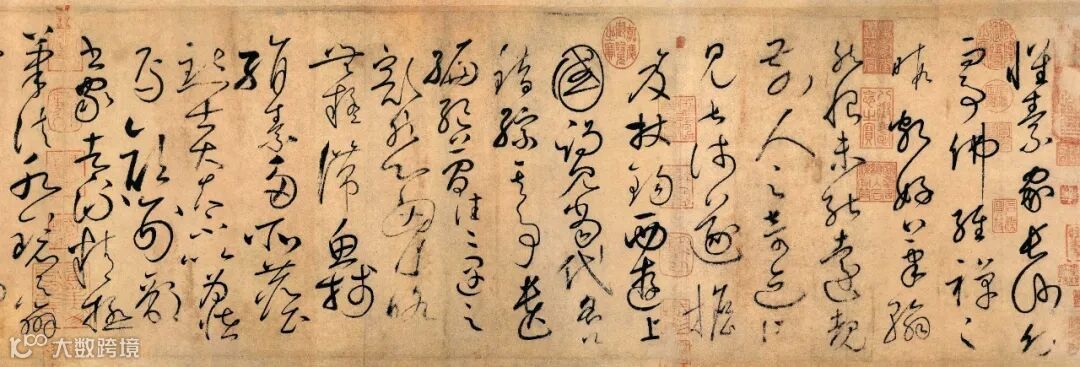 懷素家長沙幼而
事佛經禪之
暇頗好筆翰
然恨未能遠覩
前人之奇迹所
見甚淺遂擔
笈杖錫西遊上
國謁見當代名公
錯綜其事遺
編絕簡往往遇之
豁然心胸略
無疑滯魚牋
絹素多所塵
點士大夫不以為怪
焉顏刑部
書家者流精極
筆法水鏡之辨
大数跨境